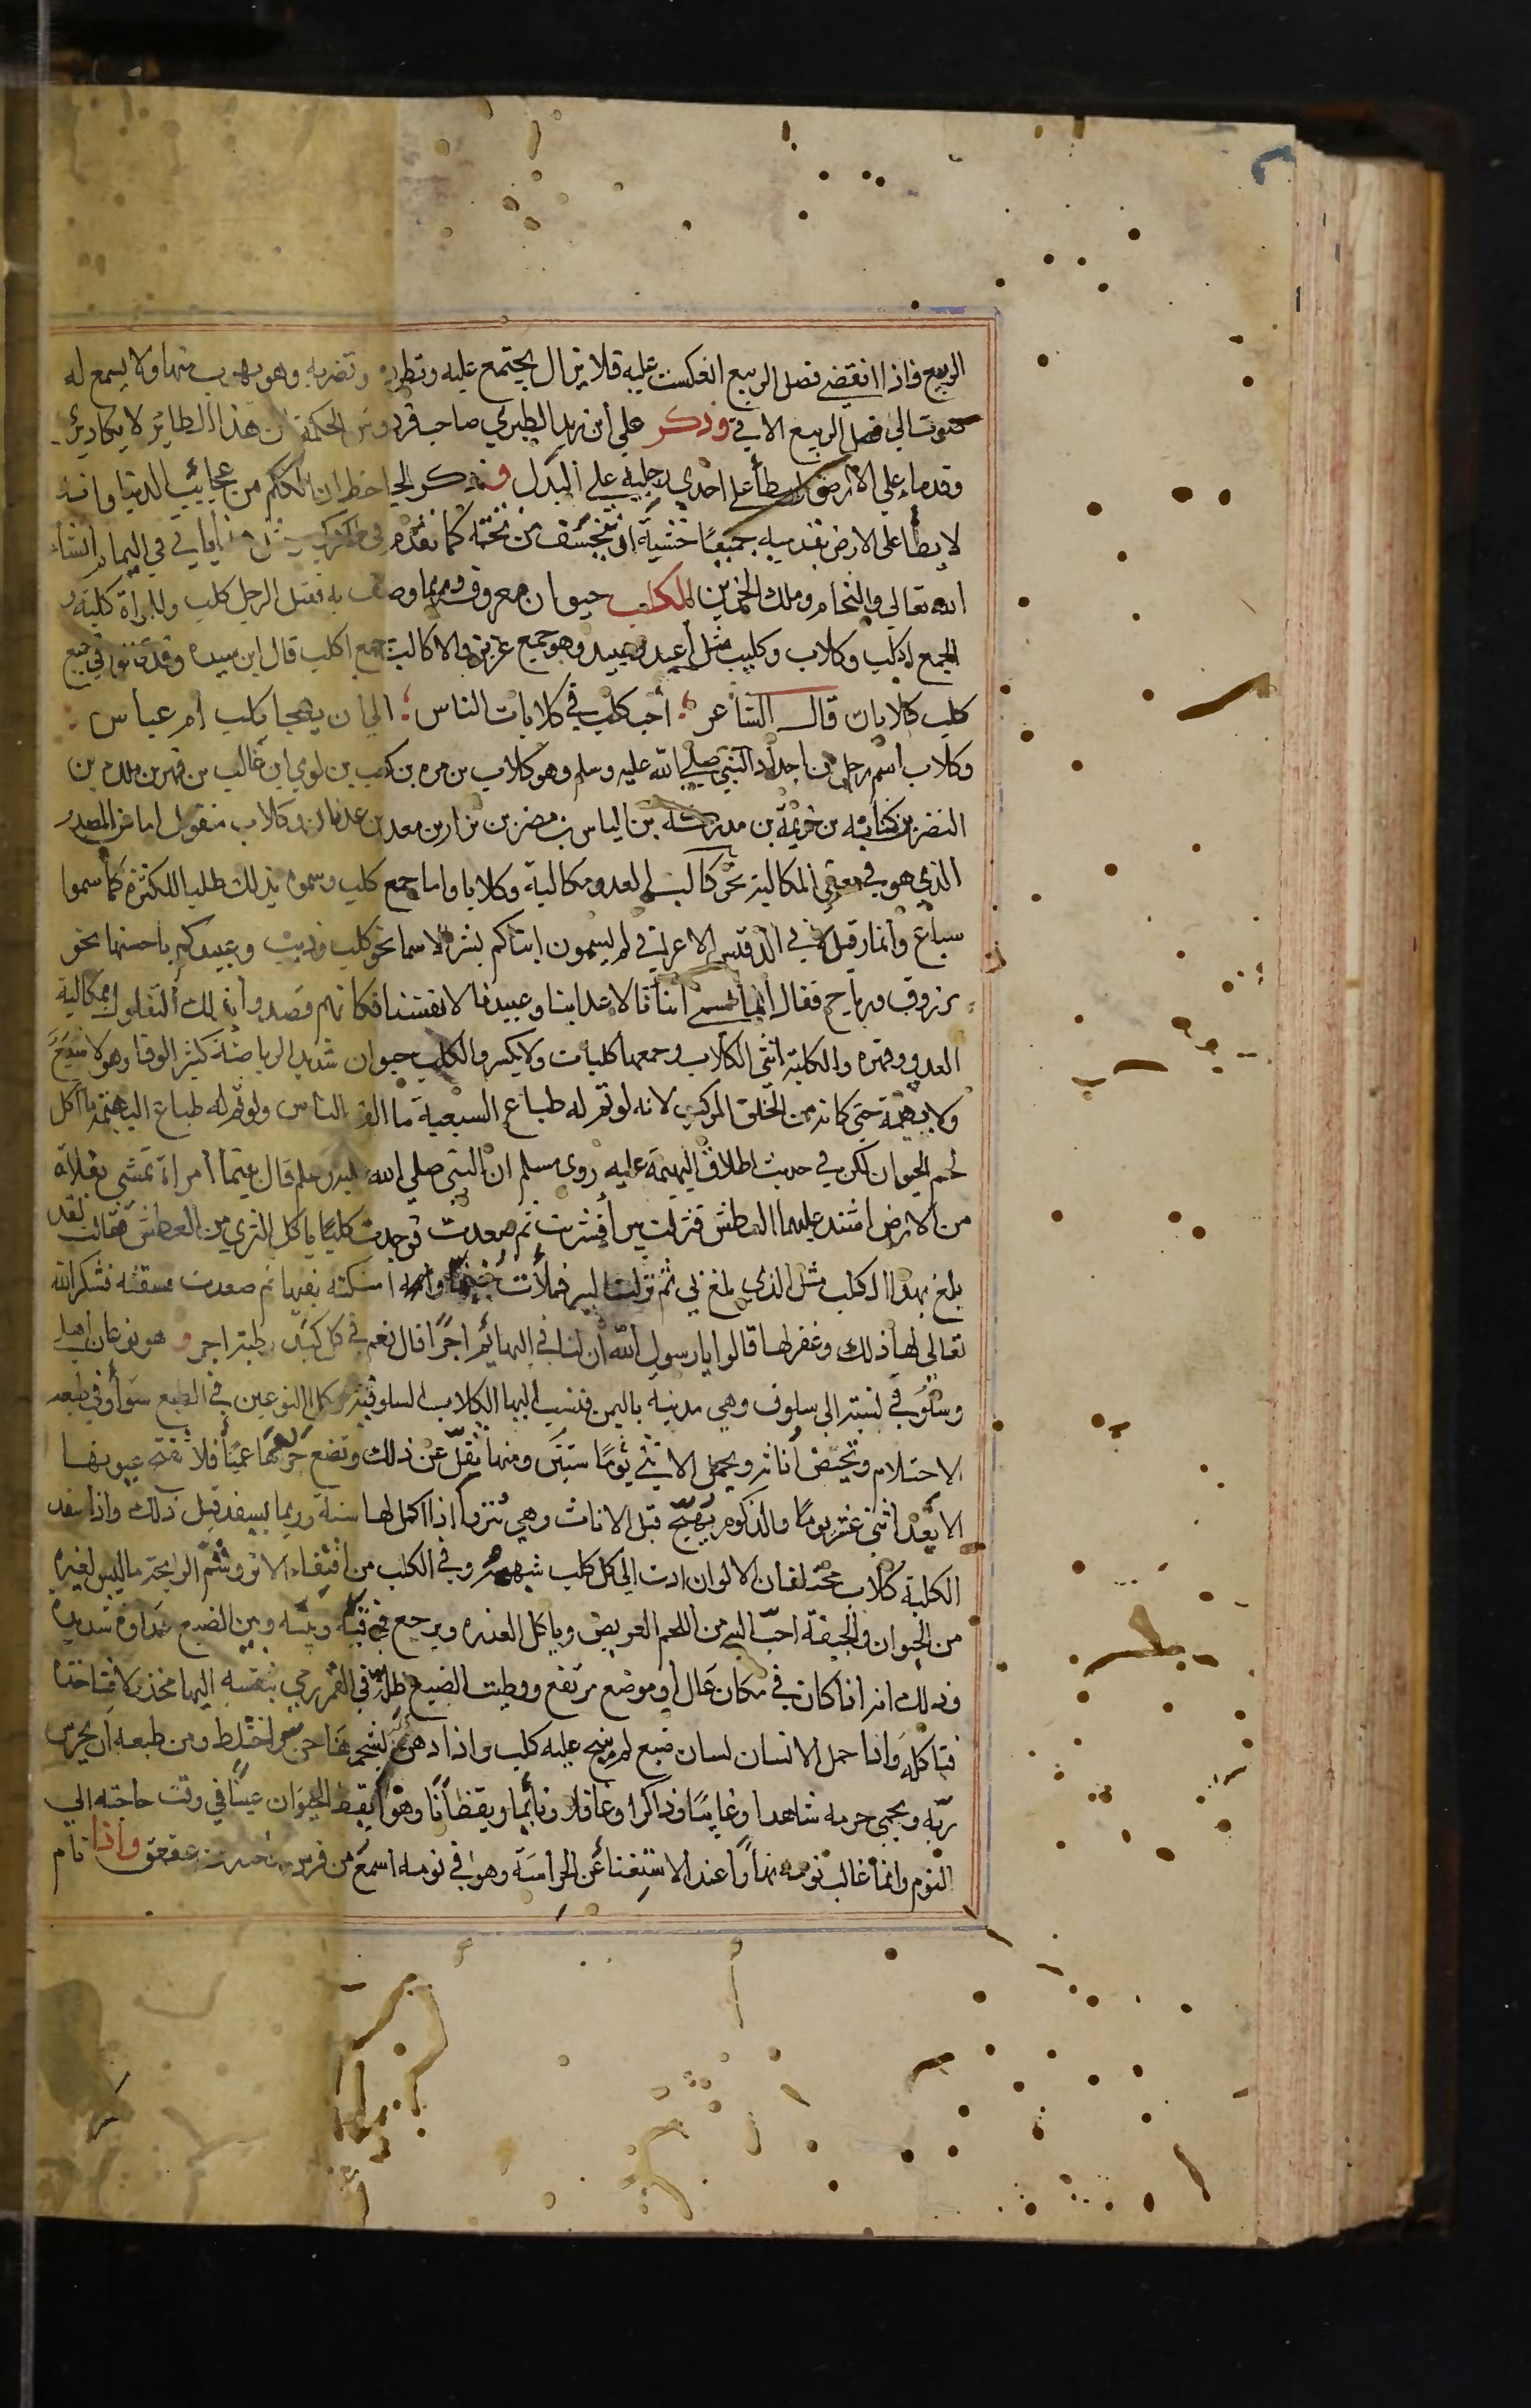 الربيع فاذا انقضي فصل الربيع انعكست عليه فلا يزال يجتمع عليه وتطرده وتضربه وهو يهرب منها ولا يسمع له
صوت الي فصل الربيع الاتي وذكر علي ابن زيد الطبري صاحب فردوس الحكمة ان هذا الطائر لا يكاد يري
وقدماه علي الارض بل يطأ علي احدي رجليه علي البدل وذكر الجاحظ ان الككم من عجايب الدنيا وانه
لا يطأ علي الارض بقدميه جميعا خشية ان تنخسف من تحته كما تقدم في ياتي في اليمام انشا
الله تعالي والنحام وملك الحزين الكلب حيوان معروف وربما وصف به فقيل الرجل كلب وللمراة كلبة و
الجمع اكلب وكلاب وكليب مثل اعبد وعبيد وهو جمع عزيز والاكالب جمع اكلب قال ابن سيده وقد في جمع
كلب كلابات قال الشاعر أحب كلب في كلابات الناس الي ان يهجا كلب ام عباس
وكلاب اسم رجل من اجداد النبي صلي الله عليه وسلم وهو كلاب بن مره بن كعب بن لوي ابن غالب بن فهر بن ملك بن
النضر بن كنانه بن خزيمة بن مدركة بن الياس بن مضر بن نزار بن معد بن عدنان وكلاب منقول اما من المصدر
الذي هو في معني المكالبة نحو كالبت العدو مكالبة وكلابا واما جمع كلب وسموه بذلك طلبا للكثرة كما سموا
سباع وانمار قيل لابي الدقيس الاعرابي لم تسمون ابناكم بشر الاسما نحو كلب وذيب وعبيدكم باحسنها نحو
مرزوق ورباح فقال انما نسمي ابناءنا لاعداينا وعبيدنا لانفسنا فكانهم قصدوا بذلك التفاول بمكالبة
العدو وقهره والكلبة انثي الكلاب وجمعها كلبات ولا يكسر والكلب حيوان شديد الرياضة كثير الوفا وهو لا سبع
ولا بهيمة حتي كانه من الخلق المركب لانه لو تم له طباع السبعية ما الف الناس ولو تم له طباع البهيمة ما اكل
لحم الحيوان لكن في حديث اطلاق البهيمة عليه روي مسلم ان النبي صلي الله عليه وسلم قال بينما امراة تمشي بفلاة
من الارض اشتد عليها العطش فنزلت بيرا فشربت ثم صعدت فوجدت كلبا ياكل الثري من العطش فقالت لقد
بلغ بهذا الكلب مثل الذي بلغ بي ثم نزلت البير فملأت خفها وامسكته بفيها ثم صعدت فسقته فشكر الله
تعالي لها ذلك وغفر لها قالوا يا رسول الله ان لنا في البهايم اجرا قال نعم في كل كبد رطبة اجر وهو نوعان اهلي
وسلوقي نسبة الي سلوق وهي مدينة باليمن فتنسب اليها الكلاب السلوقية وكلا النوعين في الطبع سوا وفي طبعه
الاحتلام وتحيض أناثه ويحمل الانثي يوما ستين ومنها تقل عن ذلك وتضع جراها عميا فلا تفتح عيونها
الا بعد اثني عشر يوما والذكور تهيج قبل الاناث وهي تنزوا اذا اكمل لها سنة وربما يسفد قبل ذلك واذا سفد
الكلبة كلاب مختلفان الالوان ادت الي كل كلب شبهه وفي الكلب من اقتفاء الاثر وشم الرايحة ما ليس لغيره
من الحيوان والجيفة احب اليه من اللحم الغريض وياكل العذره ويرجع في قيئه وبينه وبين الضبع عداوة شديدة
وذلك انه اذا كان في مكان عال او موضع مرتفع ووطيت الضبع ظله في القمر رمي بنفسه اليها مخذولا فتاخذه
فتاكله واذا حمل الانسان لسان ضبع لم ينبح عليه كلب واذا دهن بشحمها جن واختلط ومن طبعه ان يحرس
ربه ويحمي حرمه شاهدا وغايبا وذاكرا وغافلا ونايما ويقظانا وهو ايقظ الحيوان عينا في وقت حاجته الي
النوم وانما غالب نومه نهارا عند الاستغنا عن الحراسة وهو في نومه اسمع من فرس واحذر من عقعق واذا نام